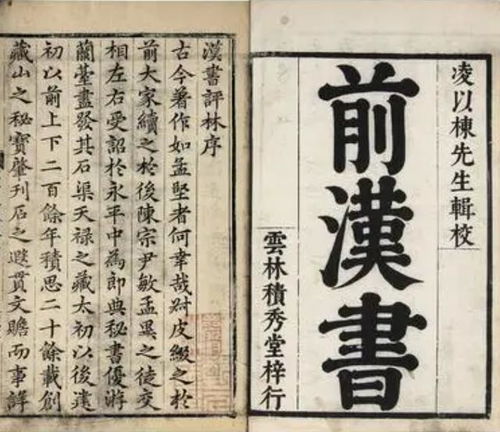 凌以棟先生輯校
前漢書
雲林積秀堂梓行
漢書評林序
古今著作如孟堅者何幸哉叔皮綴之於
前大家續之於後陳宗尹敏孟異之徒交
相左右受詔於永平中為郎典秘書優游
蘭臺盡發其石渠天祿之藏太初以後建
初以前上下二百餘年積思二十餘載創
藏山之秘寶肇刊石之遐貫文贍而事詳